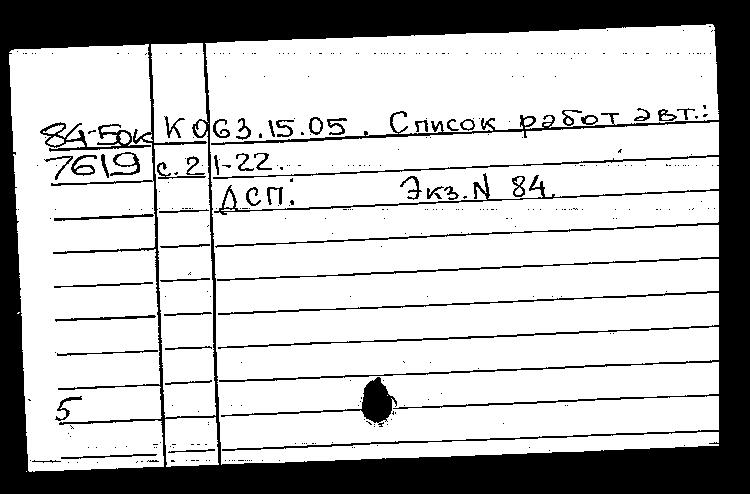 84-5ок К 063.15.05. Список работ авт.:
7619 с. 21-22.
ДСП. Экз. N 84.
5